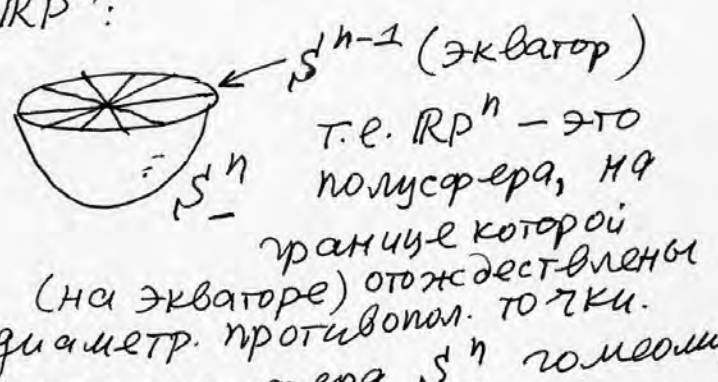 RP :
S^{n-1} (экватор)
S^n_-
т.е. RP^n – это
полусфера, на
границе которой
(на экваторе) отождествлены
диаметр. противопол. точки.
S^n гомеом